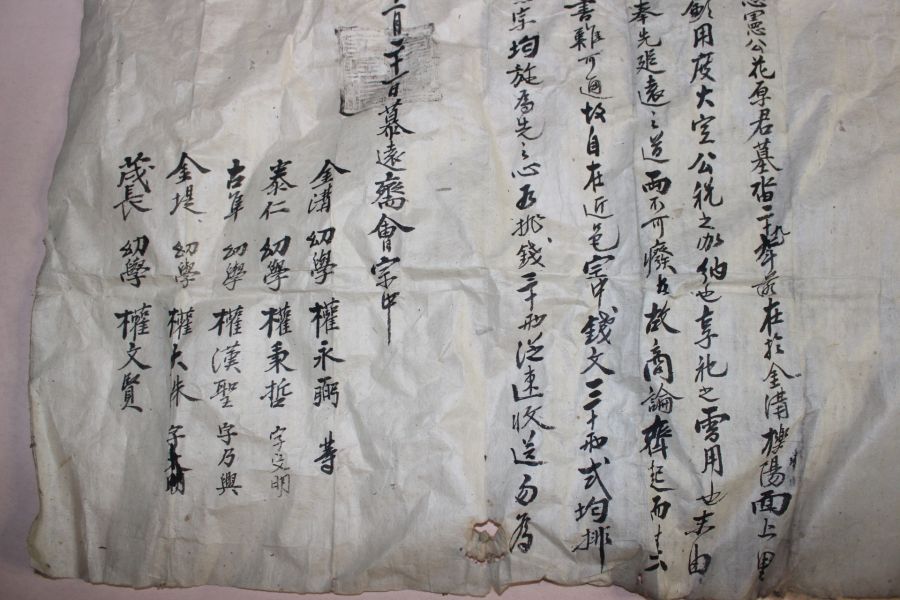 憲公花原君墓沓二千於金溝櫻陽面上里
用度大定公稅之加納也享祀之需用也未由
奉先追遠之道而不可廢也故商論齊起而
書難可通故自在近邑宗中錢文二十兩式均排
宗均施爲先之心另排錢二十兩從速收送勿爲
月二十一日慕遠齋會宗中
金溝 幼學 權永弼 等
泰仁 幼學 權秉哲 字文明
古阜 幼學 權漢聖 字乃興
金堤 幼學 權大洙 字
茂長 幼學 權文賢